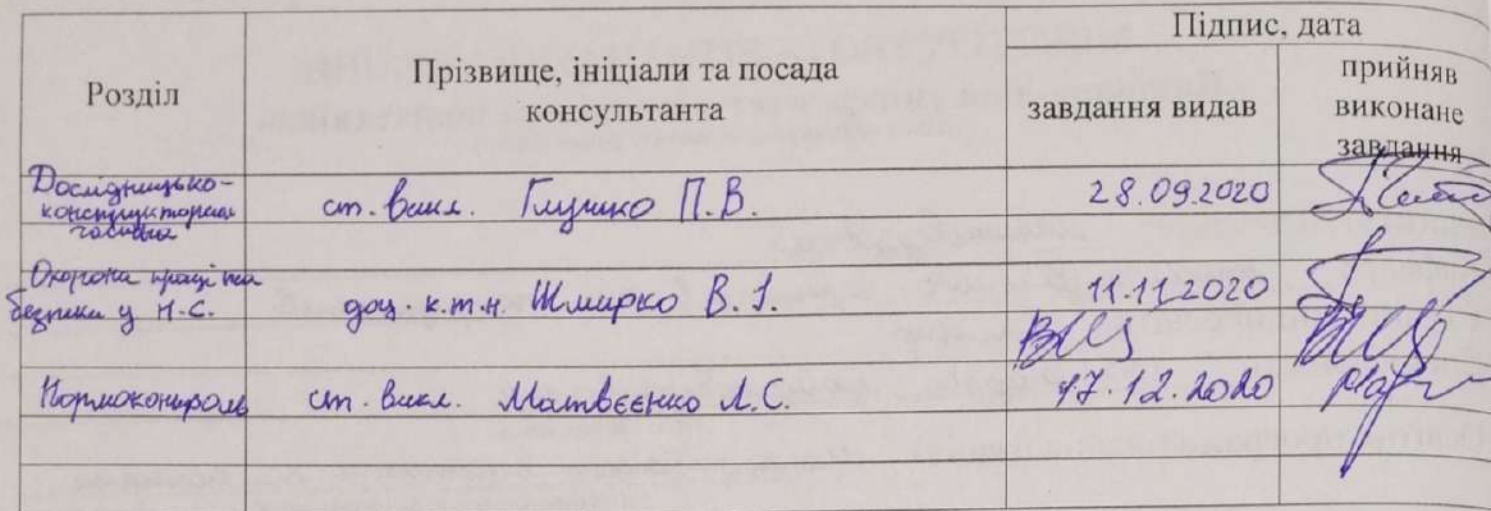 Розділ
Прізвище, ініціали та посада
консультанта
Підпис, дата
завдання видав
прийняв
виконане
завдання
Дослідницько-
конструкторська
частина
ст. викл. Глушко П.В.
28.09.2020
Охорона праці та
безпека у Н.С.
доц. к.т.н. Шмирко В.І.
11.11.2020
Нормоконтроль
ст. викл. Матвєєнко Л.С.
17.12.2020